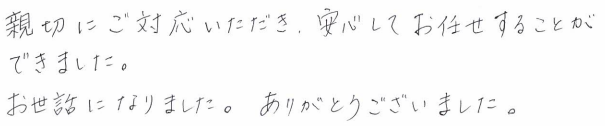 親切にご対応いただき、安心してお任せすることが
できました。
お世話になりました。ありがとうございました。